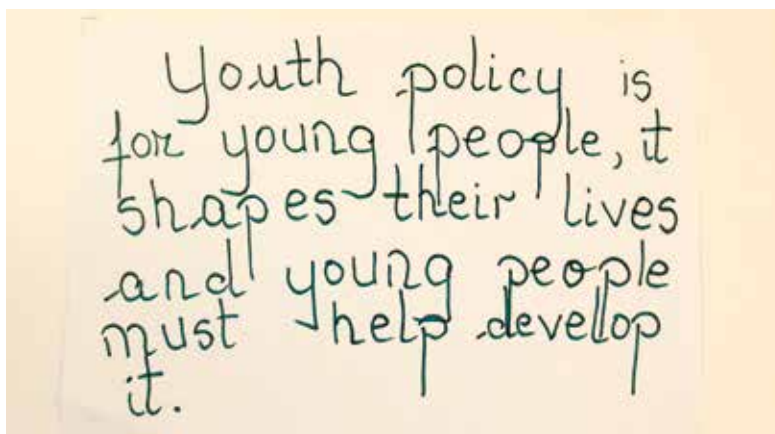 Youth policy is
for young people, it
shapes their lives
and young people
must help develop
it.